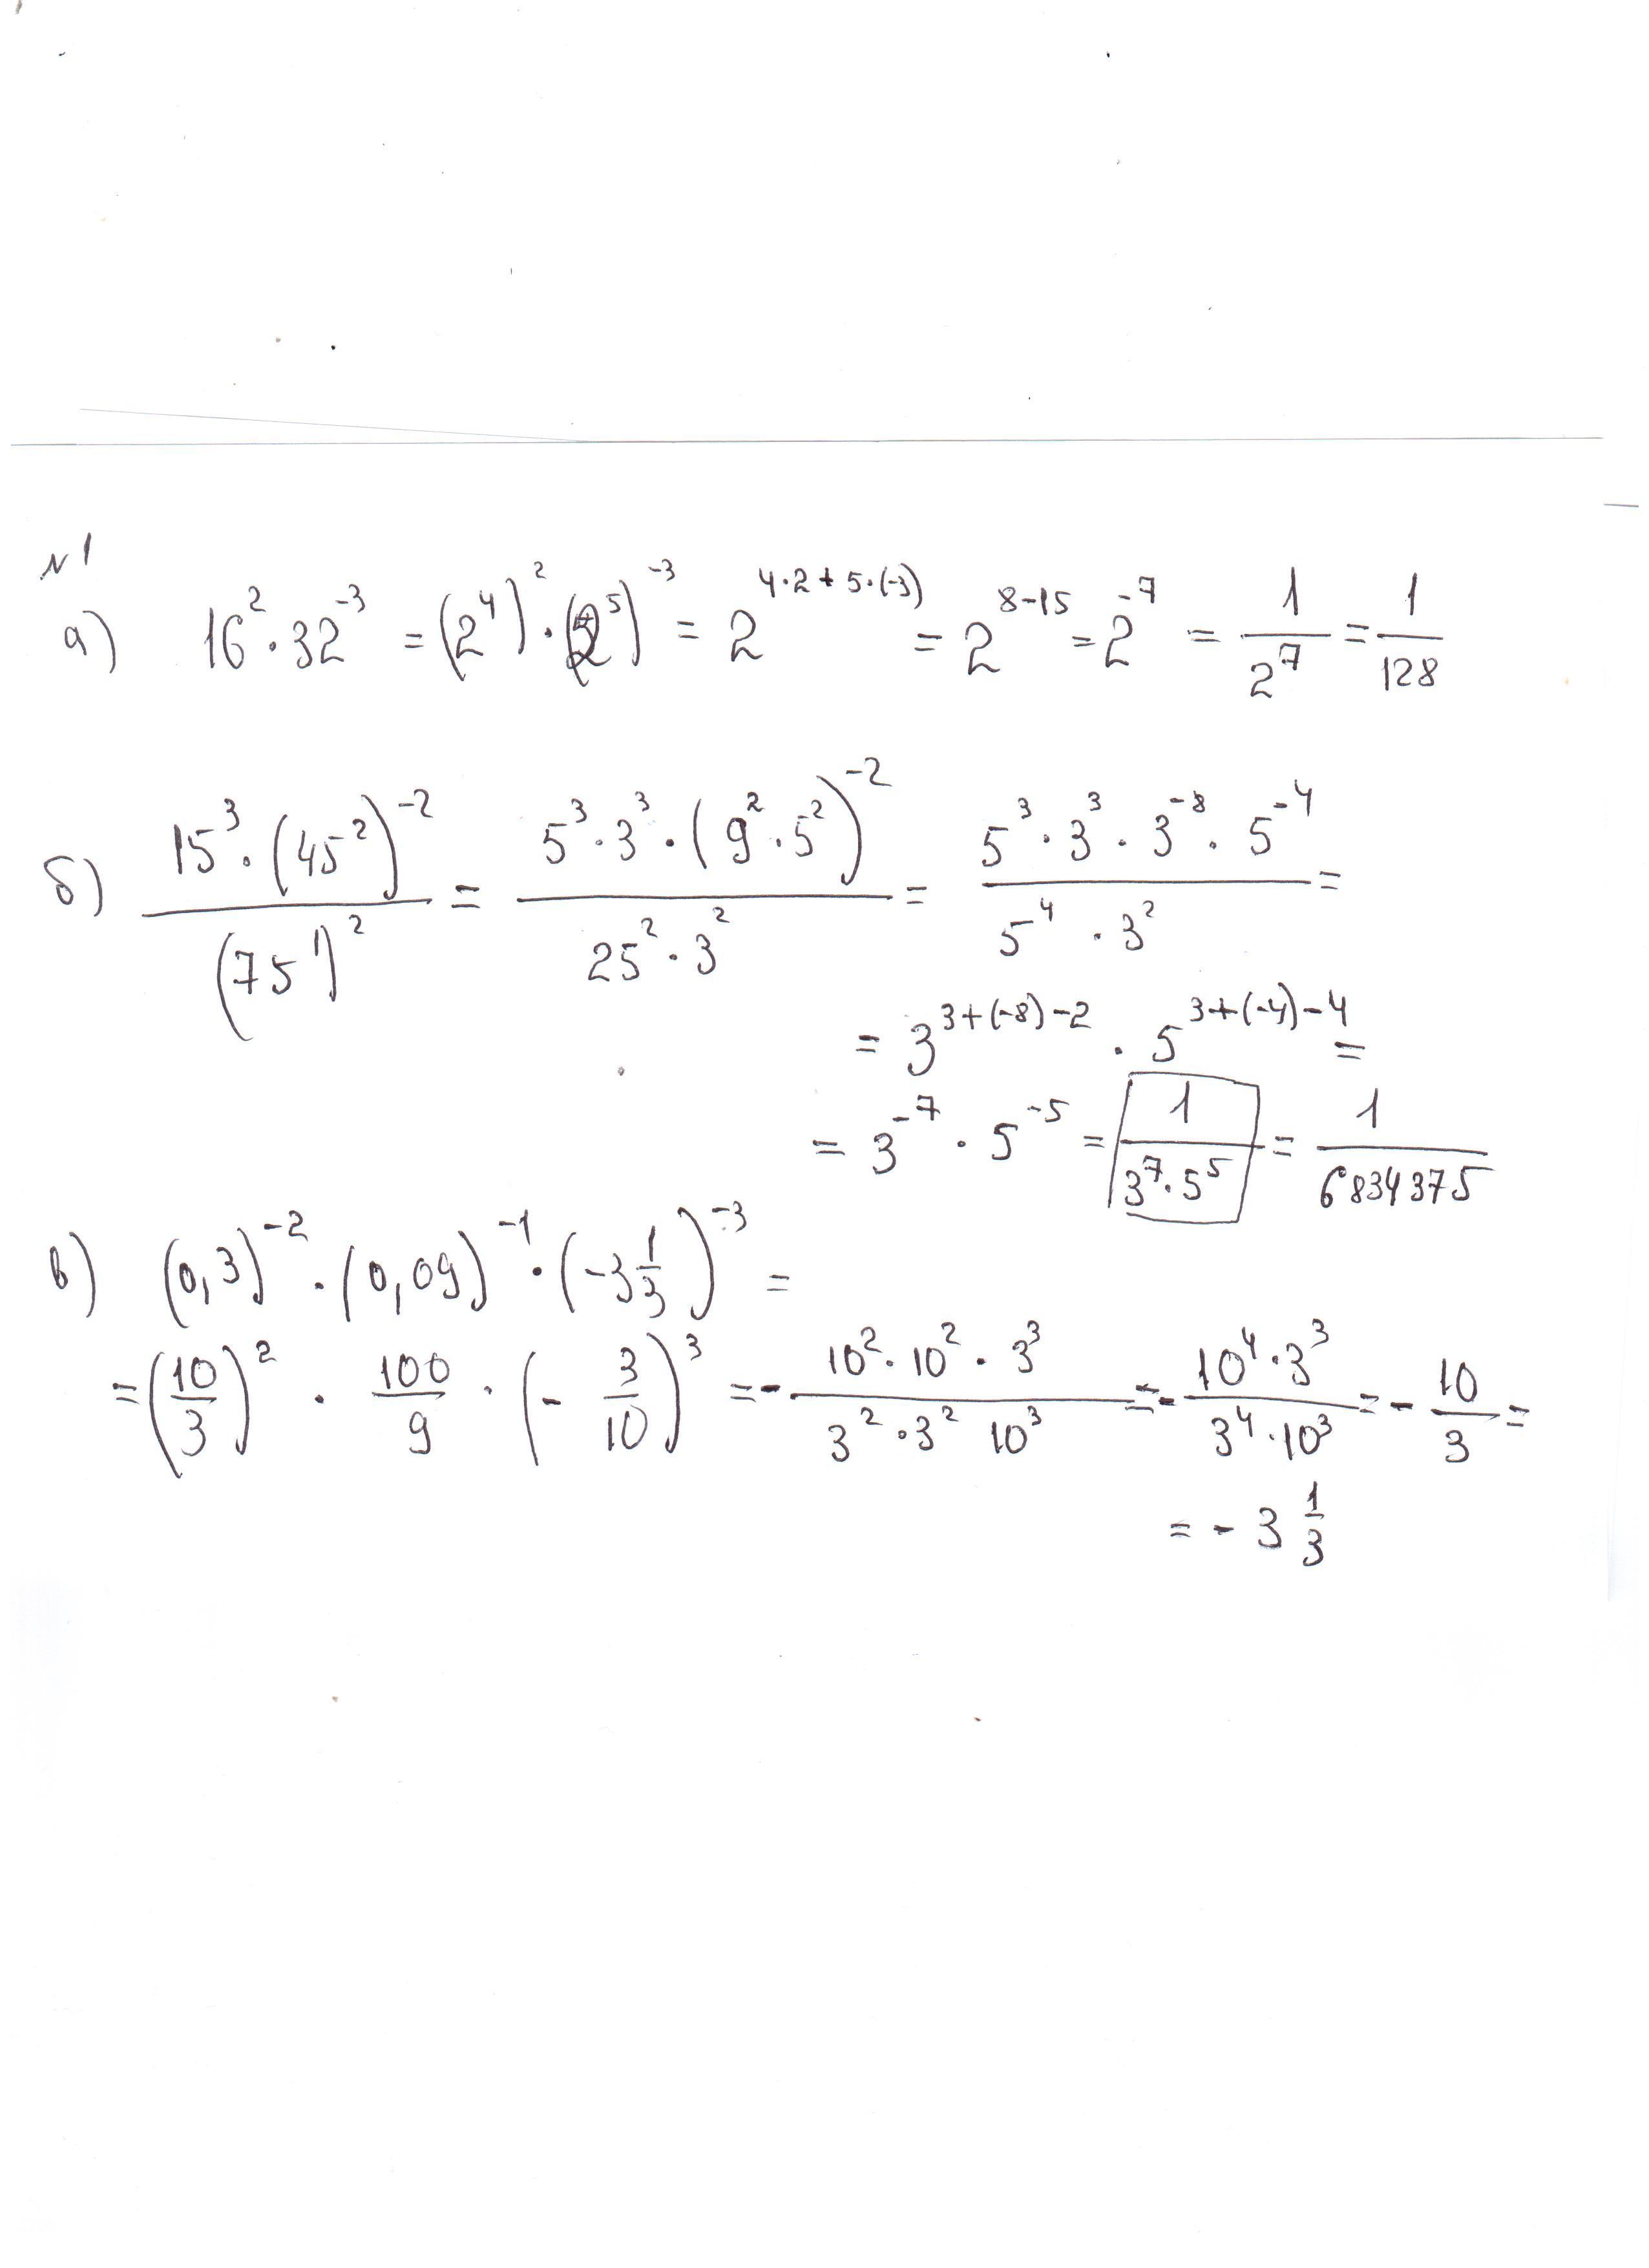 №1
а) 16² · 32⁻³ = (2⁴)² · (2⁵)⁻³ = 2^(4·2+5·(-3)) = 2^(8-15) = 2⁻⁷ = 1/2⁷ = 1/128
б) (15³ · (45²)⁻²)/((75¹)²) = (5³ · 3³ · (9² · 5²)⁻²)/(25² · 3²) = (5³ · 3³ · 3⁻⁸ · 5⁻⁴)/(5⁴ · 3²) =
= 3^(3+(-8)-2) · 5^(3+(-4)-4) =
= 3⁻⁷ · 5⁻⁵ = 1/(3⁷·5⁵) = 1/6834375
в) (0,3)⁻² · (0,09)⁻¹ · (-3 1/3)⁻³ =
= (10/3)² · 100/9 · (- 3/10)³ = - (10² · 10² · 3³)/(3² · 3² 10³) = - (10⁴ · 3³)/(3⁴ · 10³) = - 10/3 =
= - 3 1/3